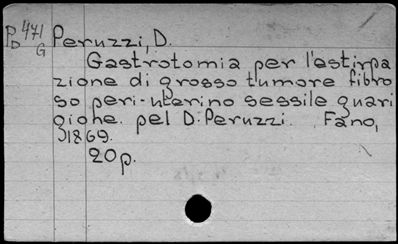 PD 471 G Peruzzi, D.
Gastrotomia per l'estirpa
zione di grosso tumore fibro
so peri-uterino sessile guari
gione. pel D. Peruzzi. Fano,
1869.
20p.